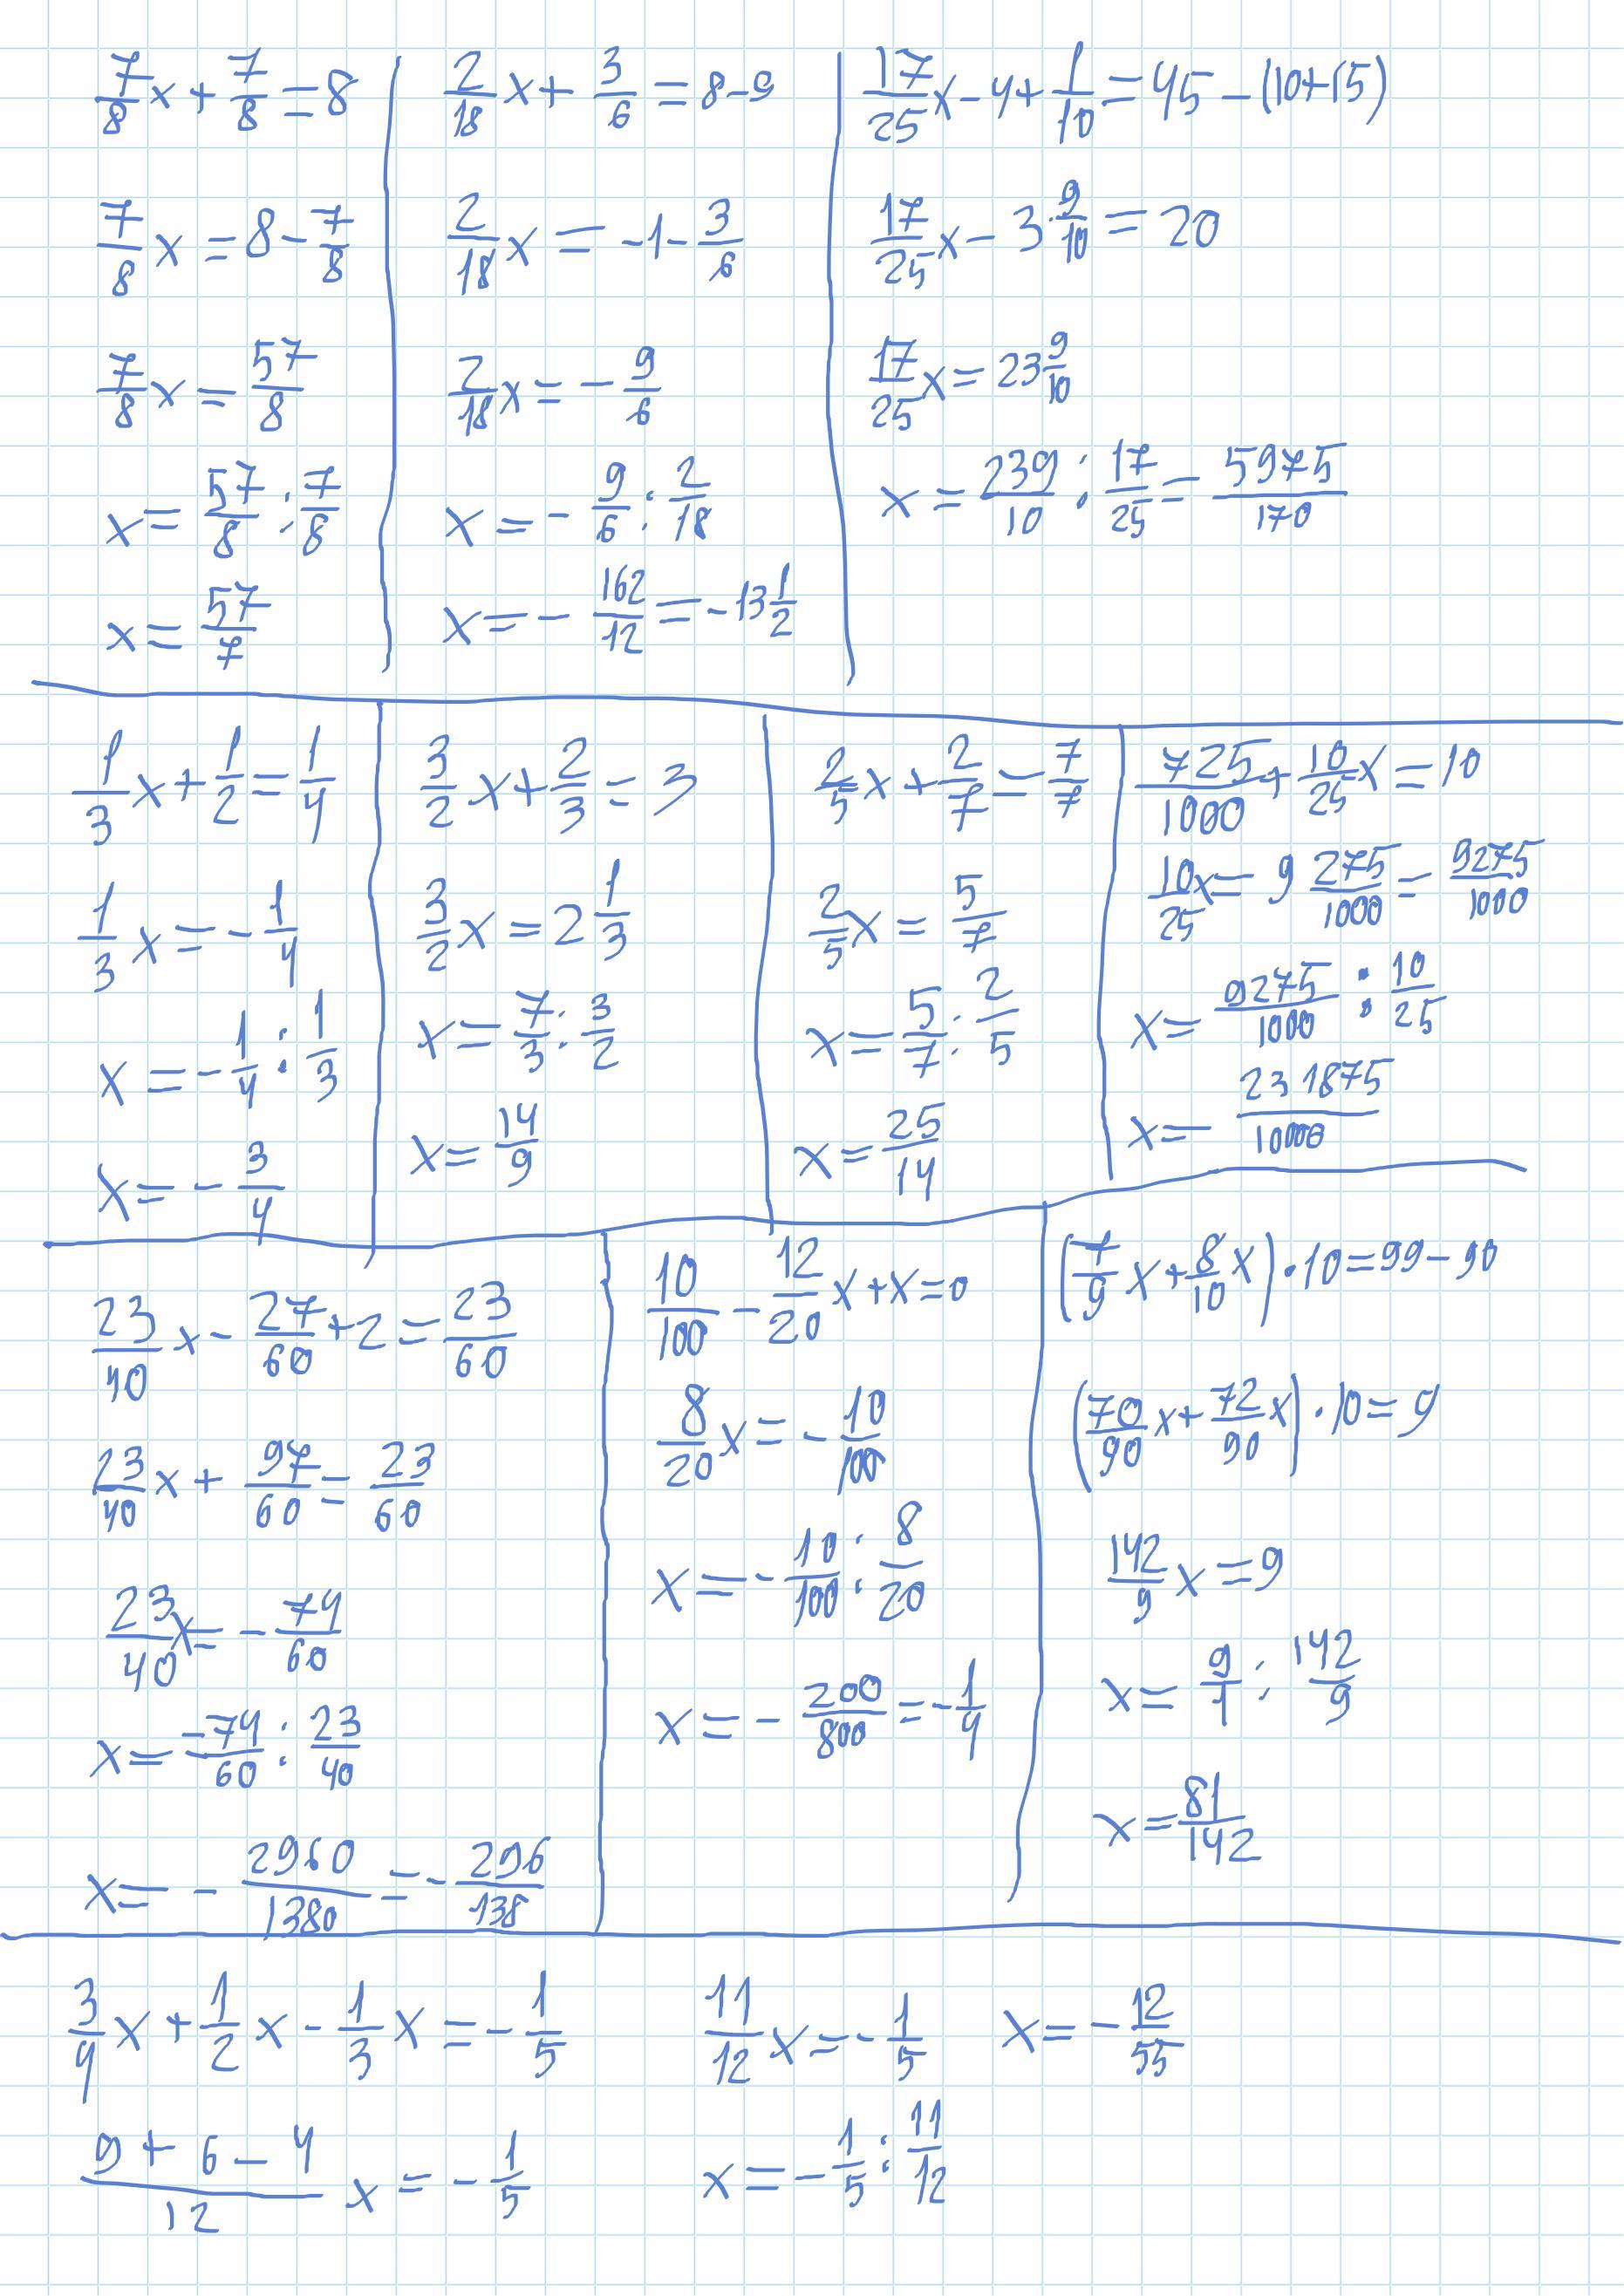 7/8 x + 7/8 = 8
7/8 x = 8 - 7/8
7/8 x = 57/8
x = 57/8 : 7/8
x = 57/7
2/18 x + 3/6 = 8-9
2/18 x = -1 - 3/6
2/18 x = - 9/6
x = - 9/6 : 2/18
x = - 162/12 = -13 1/2
17/25 x - 4 + 1/10 = 45 - (10+15)
17/25 x - 3 9/10 = 20
17/25 x = 23 9/10
x = 239/10 : 17/25 = 5975/170
1/3 x + 1/2 = 1/4
1/3 x = - 1/4
x = - 1/4 : 1/3
x = - 3/4
3/2 x + 2/3 = 3
3/2 x = 2 1/3
x = 7/3 : 3/2
x = 14/9
2/5 x + 2/7 = 7/7
2/5 x = 5/7
x = 5/7 : 2/5
x = 25/14
725/1000 + 10/25 x = 10
10/25 x = 9 275/1000 = 9275/1000
x = 9275/1000 : 10/25
x = 231875/10000
23/40 x - 27/60 + 2 = 23/60
23/40 x + 97/60 = 23/60
23/40 x = - 74/60
x = -74/60 : 23/40
x = - 2960/1380 = - 296/138
10/100 - 12/20 x + x = 0
8/20 x = - 10/100
x = - 10/100 : 8/20
x = - 200/800 = - 1/4
(7/9 x + 8/10 x) · 10 = 99 - 90
(70/90 x + 72/90 x) · 10 = 9
142/9 x = 9
x = 9/1 : 142/9
x = 81/142
3/4 x + 1/2 x - 1/3 x = - 1/5
9 + 6 - 4/12 x = - 1/5
11/12 x = - 1/5
x = - 1/5 : 11/12
x = - 12/55